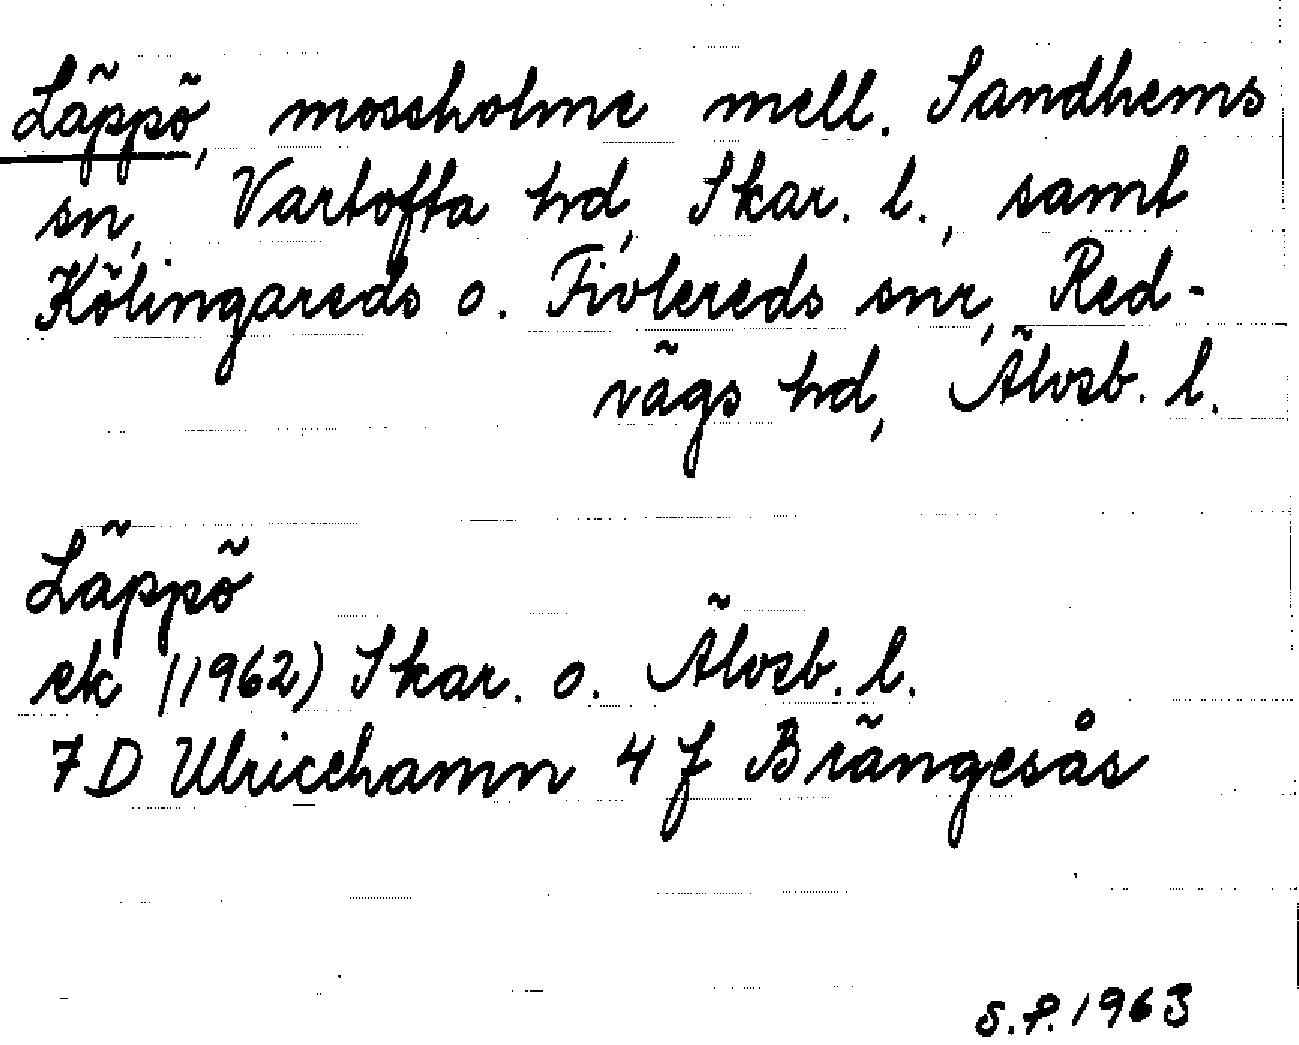 Läppö, mossholme mell. Sandhems
sn, Vartofta hd, Skar. l., samt
Kölingareds o. Fivlereds snr, Red-
vägs hd, Älvsb. l.
Läppö
ek (1962) Skar. o. Älvsb. l.
7 D Ulricehamn 4 f Brängesås
S.P. 1963